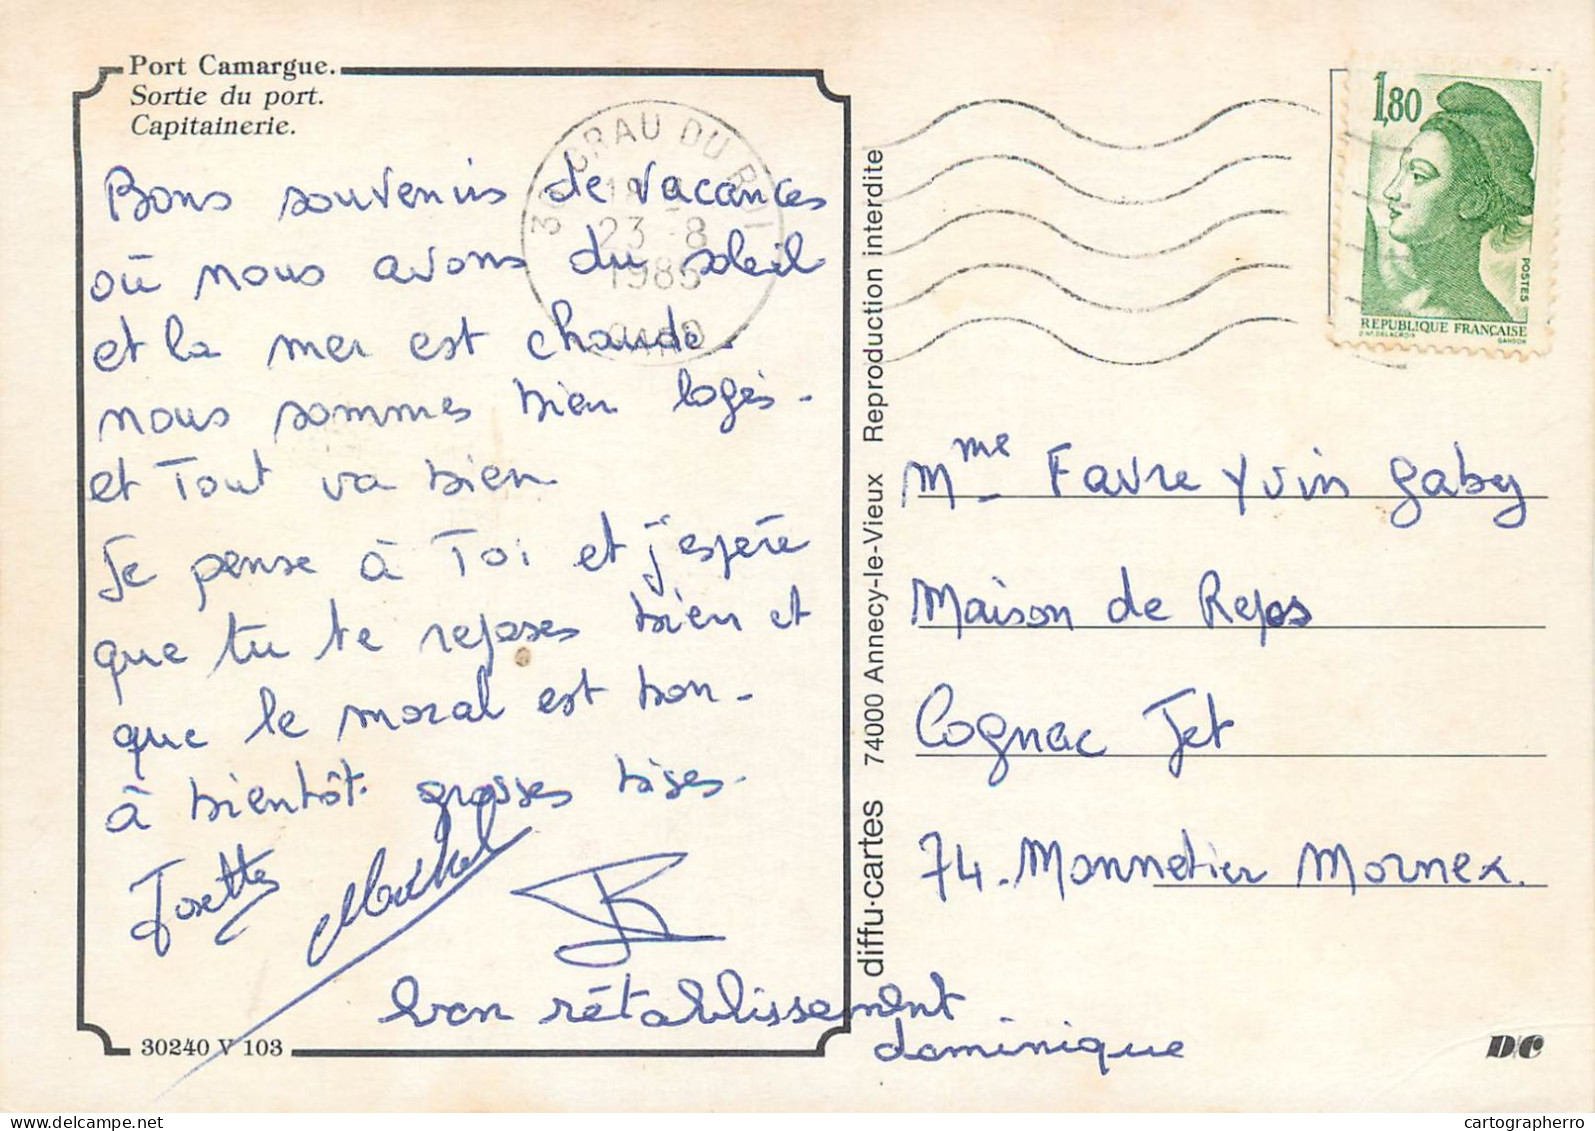 Port Camargue.
Sortie du port.
Capitainerie.
Bons souvenirs de vacances
où nous avons du soleil
et la mer est chaude.
nous sommes bien logés.
et Tout va bien
Je pense à Toi et j'espère
que tu te reposes bien et
que le moral est bon-
à bientôt. grosses bises.
Josette Michel
bon rétablissement
dominique
30240 V 103
30 GRAU DU ROI
23 -8
1985
GARD
diffu·cartes 74000 Annecy-le-Vieux Reproduction interdite
1,80
POSTES
REPUBLIQUE FRANÇAISE
D'AP. DELACROIX GANDON
Mme Favre Yvin Gaby
Maison de Repos
Cognac Jet
74. Monnetier Mornex.
D/C
www.delcampe.net
cartographerro